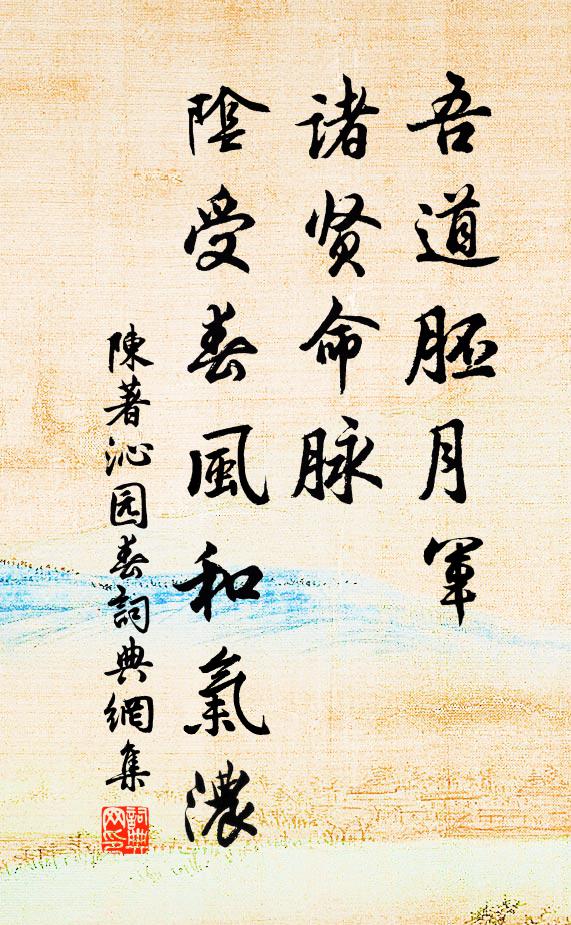 吾道胚月軍
诸贤命脉
陰受春風和氣濃
陳著沁园春詞典網集
詞典网印